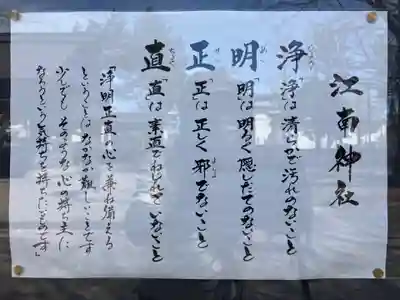 江南神社
浄 「浄」は清らかで汚れのないこと
明 「明」は明るく隠だてのないこと
正 「正」は正しく邪でないこと
直 「直」は素直でねじれていないこと
「浄明正直の心を兼ね備える
ということはなかなか難しいことです
少しでもそのような心の持ち主に
なろうという気持ちを持ちたいものです」